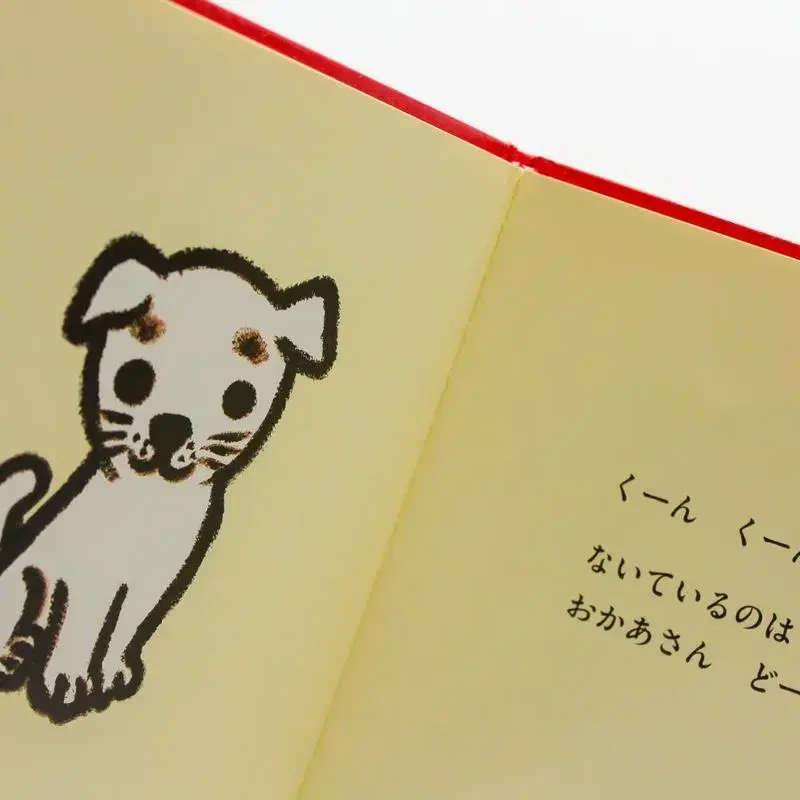 くーん　くーん
ないているのは
おかあさん　どー